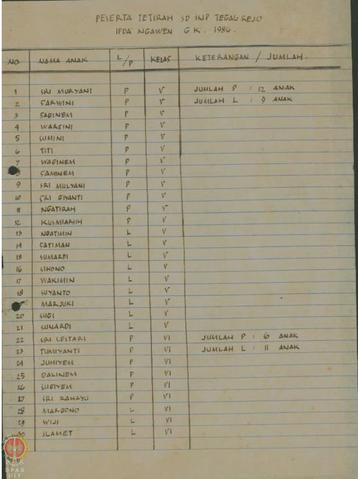 PESERTA TETIRAH SD INP TEGAL REJO
IPDA NGAWEN G K. 1986.
NO NAMA ANAK L/P KELAS KETERANGAN / JUMLAH
1 SRI MURYANI P V JUMLAH P : 12 ANAK
2 SARMINI P V JUMLAH L : 9 ANAK
3 SADINEM P V
4 WARSINI P V
5 UMINI P V
6 TITI P V
7 WAGINEM P V
8 SAMINEM P V
9 SRI MULYANI P V
10 SRI P V
11 NGATIRAH P V
12 KUSMIARSIH P V
13 NGATIMIN L V
14 SATIMAN L V
15 SUMARDI L V
16 SIHONO L V
17 WAKIMIN L V
18 SUYANTO L V
MARJUKI L V
20 L V
21 SUNARDI L V
22 SRI LESTARI P VI JUMLAH P : 6 ANAK
23 TUMIYANTI P VI JUMLAH L : 11 ANAK
24 JUMIYEM P VI
25 DALINEM P VI
26 P VI
27 SRI RAHAYU P VI
28 MARDONO L VI
29 WIJI L VI
30 SLAMET L VI